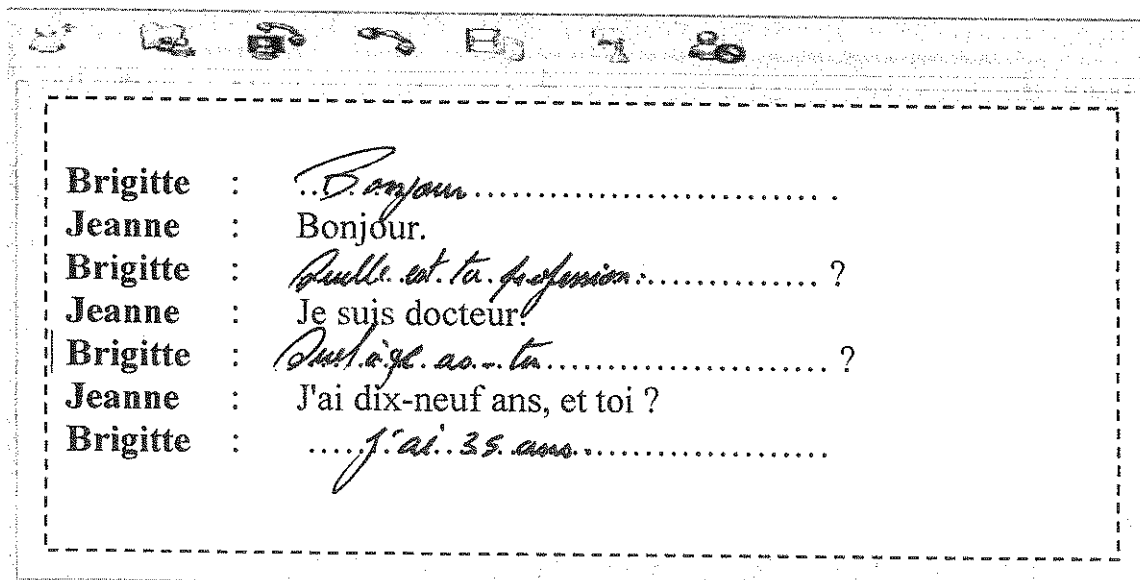 Brigitte : ..Bonjour............................
Jeanne : Bonjour.
Brigitte : Quelle est ta profession ............... ?
Jeanne : Je suis docteur.
Brigitte : Quel âge as-tu....................... ?
Jeanne : J'ai dix-neuf ans, et toi ?
Brigitte : .....j'ai 35 ans.....................